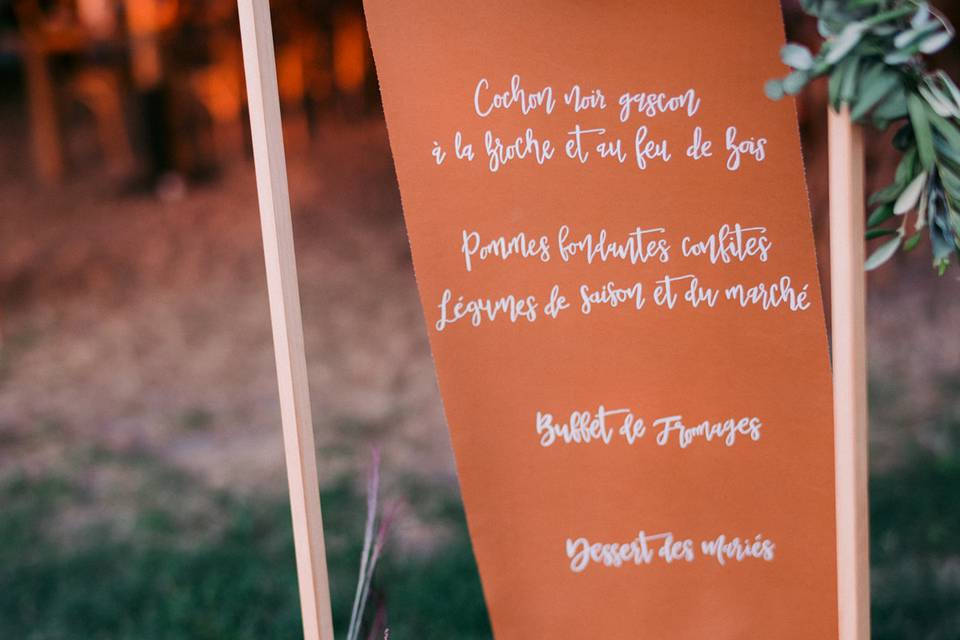 Cochon noir gascon
à la broche et au feu de bois
Pommes fondantes confites
Légumes de saison et du marché
Buffet de Fromages
Dessert des mariés